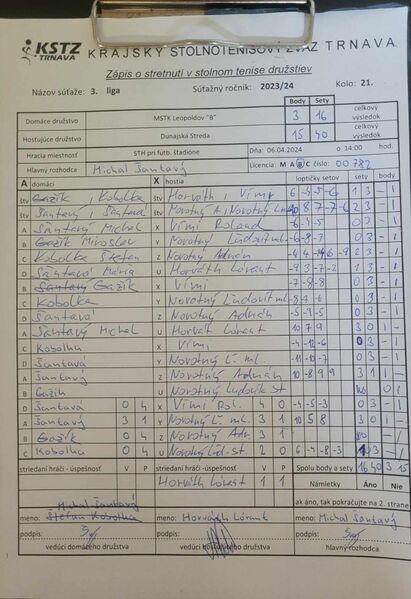 KSTZ TRNAVA KRAJSKÝ STOLNOTENISOVÝ ZVÄZ TRNAVA
Zápis o stretnutí v stolnom tenise družstiev
Názov súťaže: 3. liga Súťažný ročník: 2023/24 Kolo: 21.
Body Sety celkový
Domáce družstvo MSTK Leopoldov "B" 3 16 výsledok
Hosťujúce družstvo Dunajská Streda 15 40 celkový výsledok
Hracia miestnosť STH pri futb. štadióne Dňa: 06.04.2024 o 14:00 hod.
Hlavný rozhodca Michal Šantavý Licencia: M A B C číslo: 00782
A domáci X hostia loptičky setov sety body
štv Gažík, Kobolka štv Horváth, Vími 1 3 - 1
štv Šantavý, Šantavá štv Novotný A, Novotný 1 3 - 1
A Šantavý Michal X Vími Roland 0 3 - 1
B Gažík Miroslav Y Novotný Ľudovít ml. -6 -8 -7 0 3 - 1
C Kobolka Štefan Z Novotný Adnán 2 3 - 1
D Šantavá Mária U Horváth Lóránt -9 3 -7 -2 1 3 - 1
B Gažík X Vími -7 -8 -8 0 3 - 1
C Kobolka Y Novotný Ľudovít ml. 0 3 - 1
D Šantavá Z Novotný Adnán -5 -9 -5 0 3 - 1
A Šantavý Michal U Horváth Lóránt 10 7 9 3 0 1 -
C Kobolka X Vími -4 -12 -6 0 3 - 1
D Šantavá Y Novotný Ľ. ml. -11 -10 -7 0 3 - 1
A Šantavý Z Novotný Adnán 10 -8 9 9 3 1 1 -
B Gažík U Novotný Ludovít st
D Šantavá 0 4 X Vími Rol. 4 0 -4 -5 -3 0 3 - 1
A Šantavý 3 1 Y Novotný Ľ. ml. 3 1 10 5 8 3 0 1 -
B Gažík 0 4 Z Novotný Adn 3 1
C Kobolka 0 4 U Novotný Ľud. st 2 0 6 -4 -8 -3 1 3 - 1
striedaní hráči - úspešnosť V P striedaní hráči - úspešnosť V P Spolu body a sety 16 40 3 15
Horváth Lórant 1 1 Námietky Áno Nie
ak áno, tak pokračujte na 2. strane
Michal Šantavý
meno: Štefan Kobolka meno: Horváth Lórant meno: Michal Šantavý
podpis: podpis: podpis:
vedúci domáceho družstva vedúci hosťujúceho družstva hlavný rozhodca